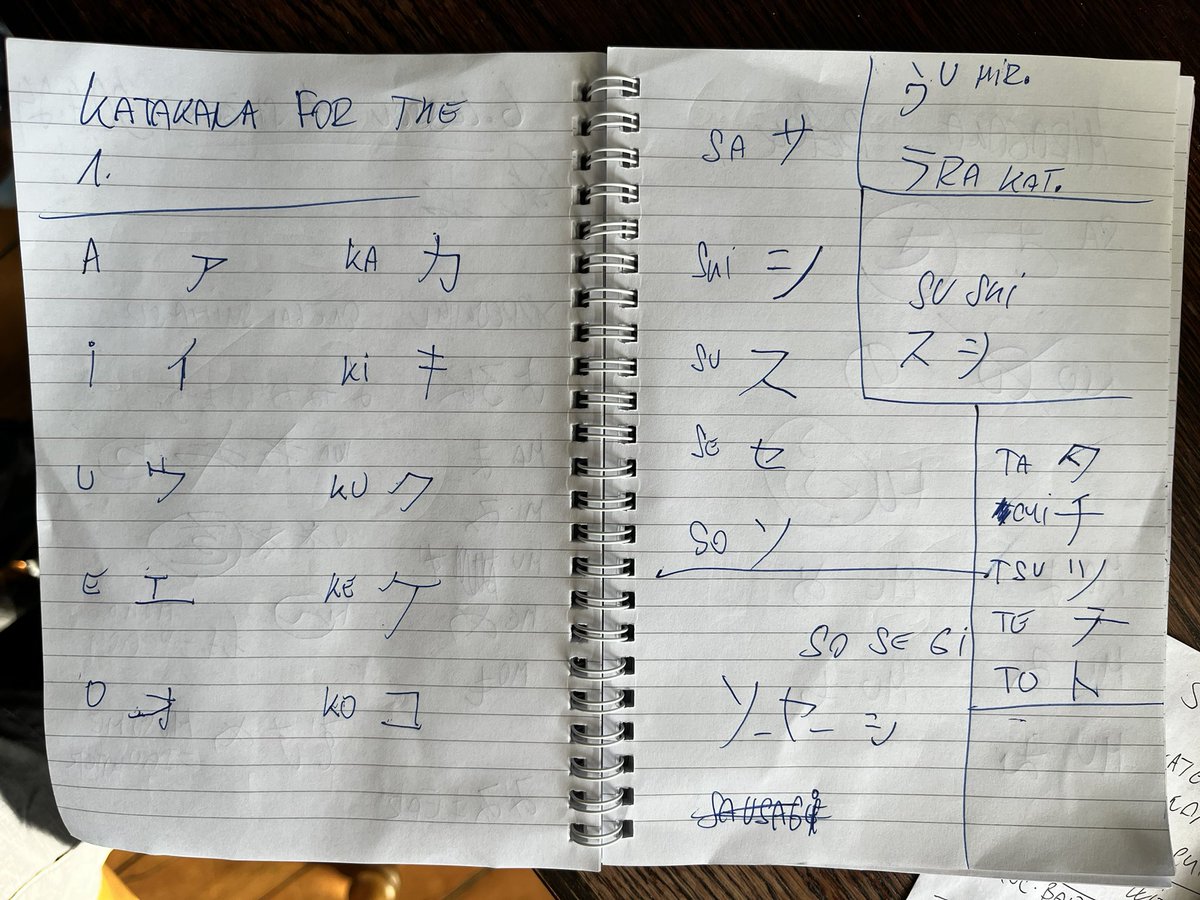 KATAKALA FOR THE
1.
A ア KA カ
i イ Ki キ
U ウ KU ク
E エ KE ケ
O オ KO コ
SA サ
SHi シ
SU ス
SE セ
SO ソ
SO SE Gi
ソーセーシ
SAUSAGE
う U HIR.
ラ RA KAT.
SU SHi
スシ
TA タ
CHi チ
TSU ツ
TE テ
TO ト